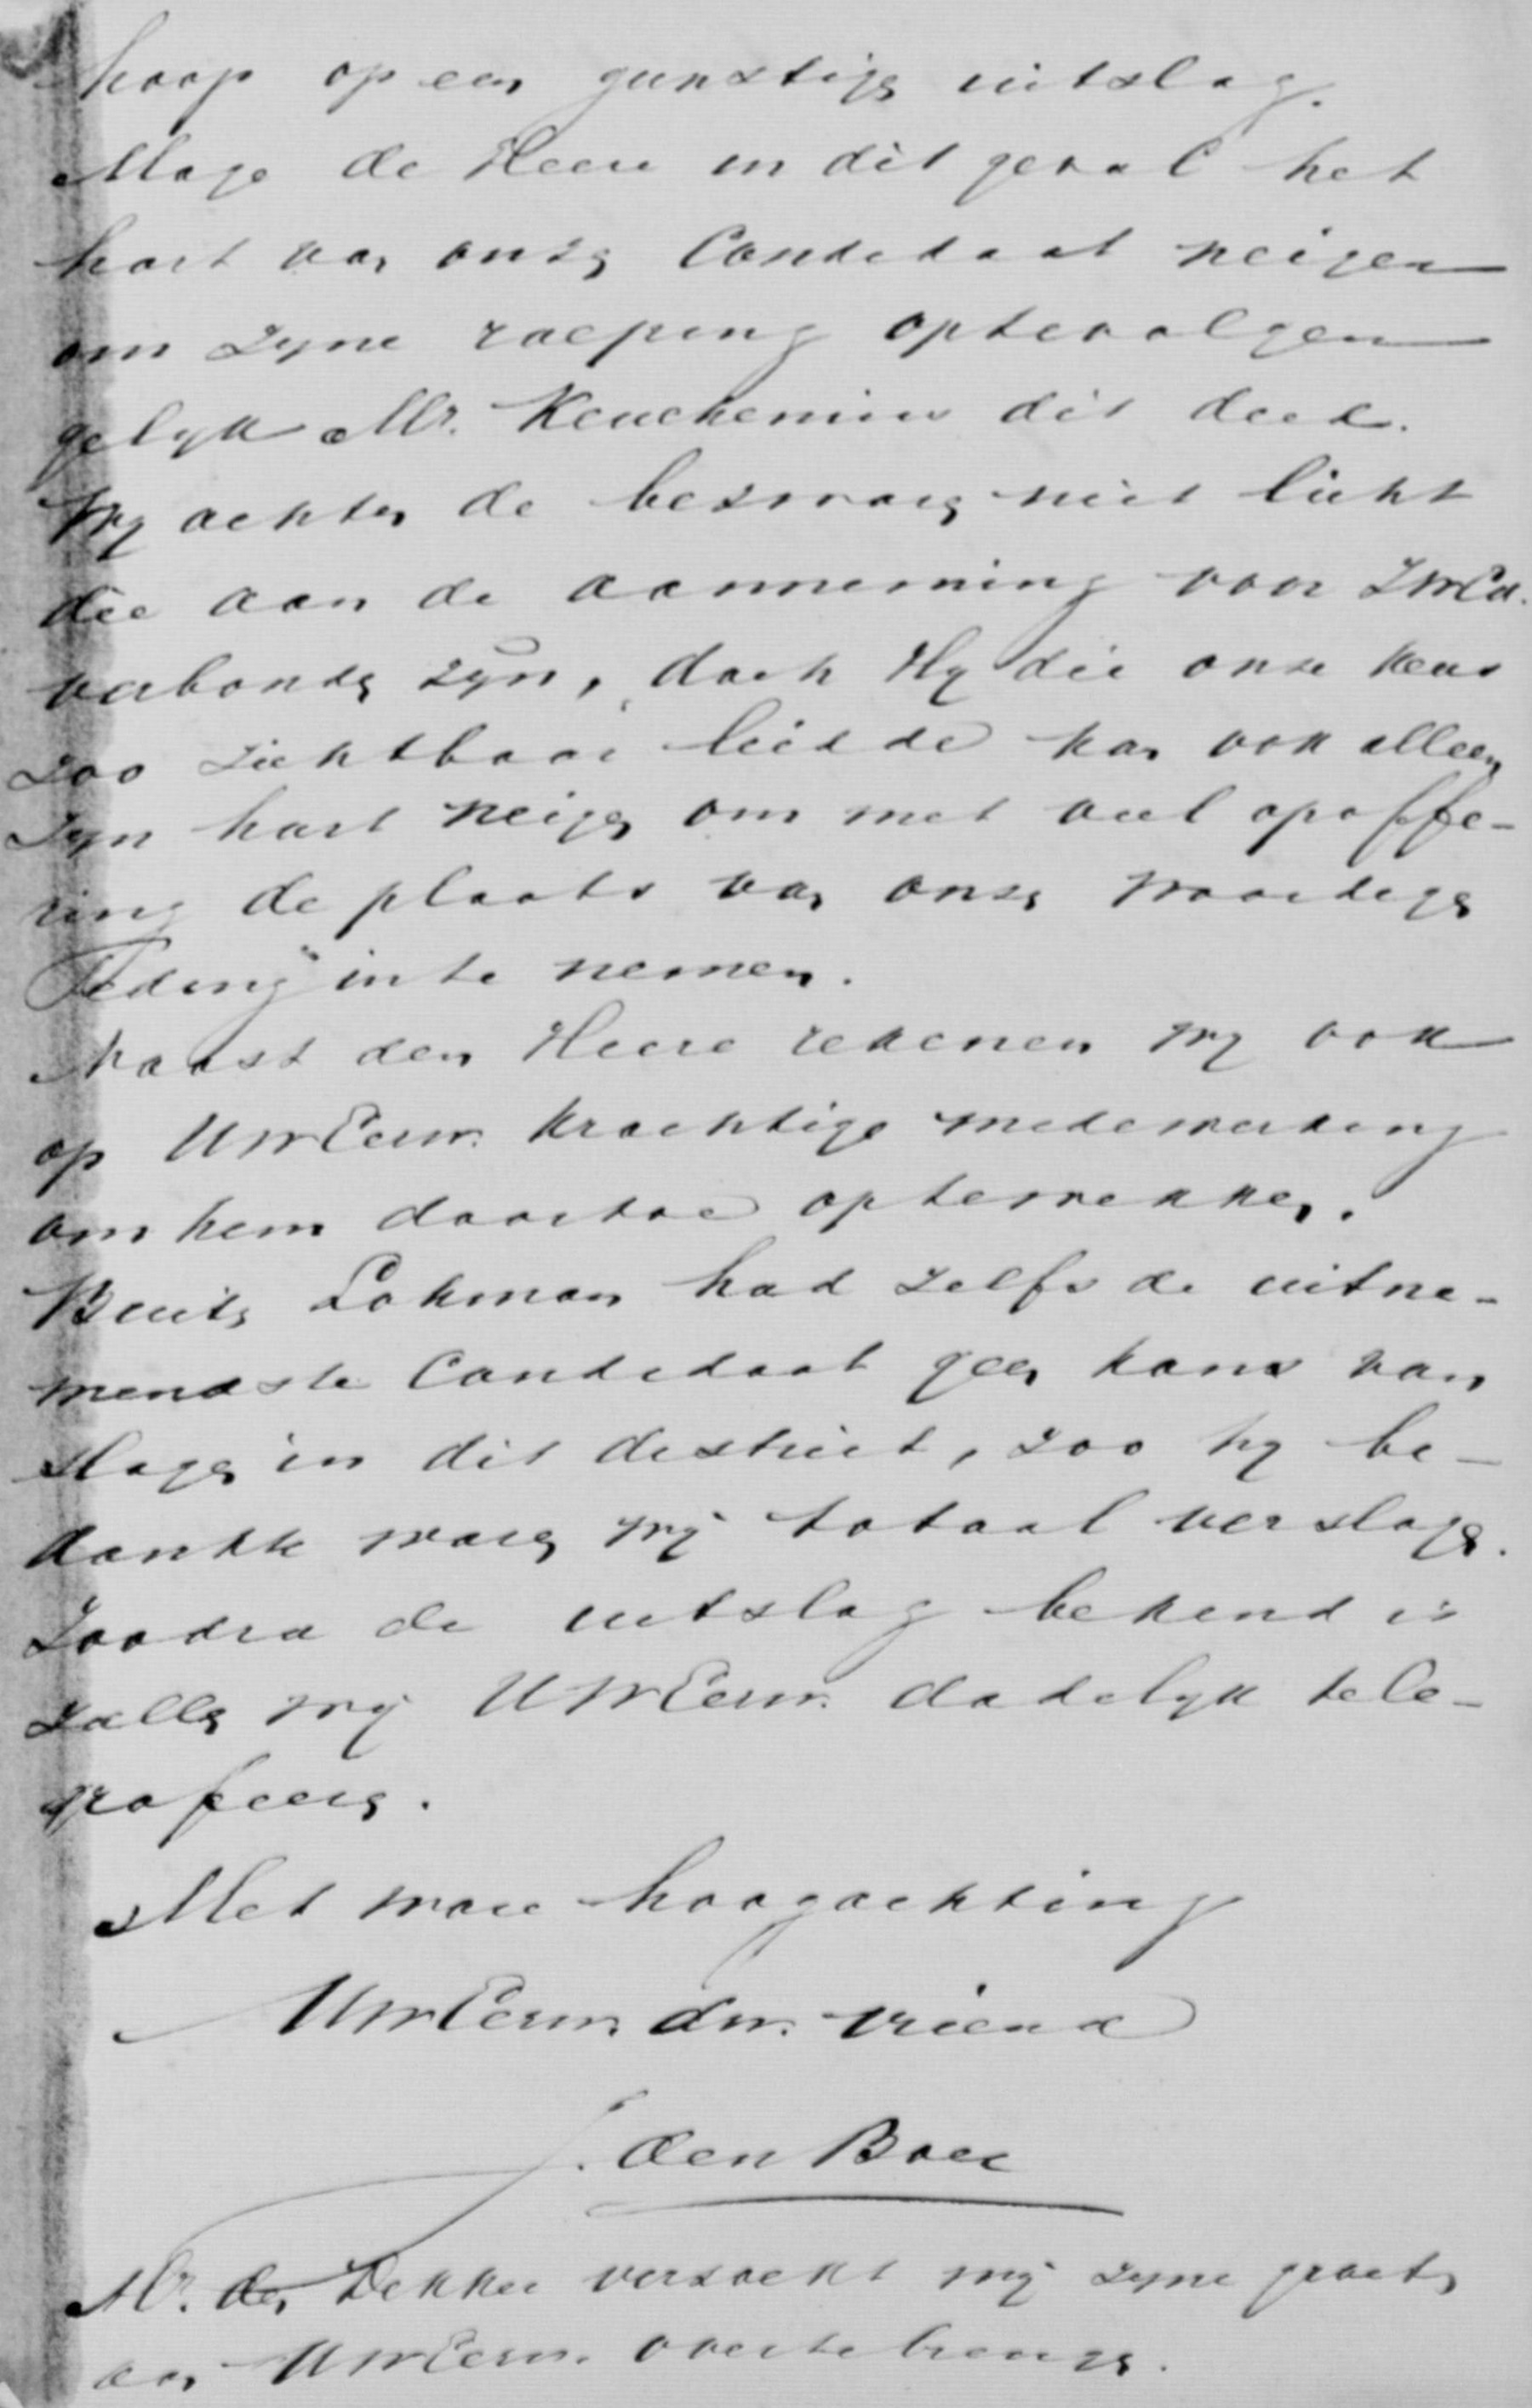 hoop op een gunstige uitslag.
Moge de Heere in dit geval het
hart van onze Candidaat neigen
om zyne roeping optevolgen
gelyk Mr. Keuchenius dit deed.
Wy achten de bezwaren niet licht
die aan de aanneming voor ZWEd.
verbonden zyn, doch Hy die onze keus
zoo zichtbaar leidde kan ook alleen
Zyn hart neigen om met veel opoffe-
ring de plaats van onze waardige
Fedding in te nemen.
Naast den Heere rekenen wy ook
op UwEerw. krachtige medewerking
om hem daartoe optewekken.
Buiten Lohman had zelfs de uitne-
mendste Candidaat geen kans van
slagen in dit district, zoo hy be-
dankte waren wij totaal verslagen.
Zoodra de uitslag bekend is
zullen wij UWEerw. dadelyk tele-
grafeeren.
Met ware hoogachting
UwEerw. dw. vriend
J. den Boer
Mr. den Dekker verzoekt mij zyne groeten
aan UwEerw. overtebrengen.